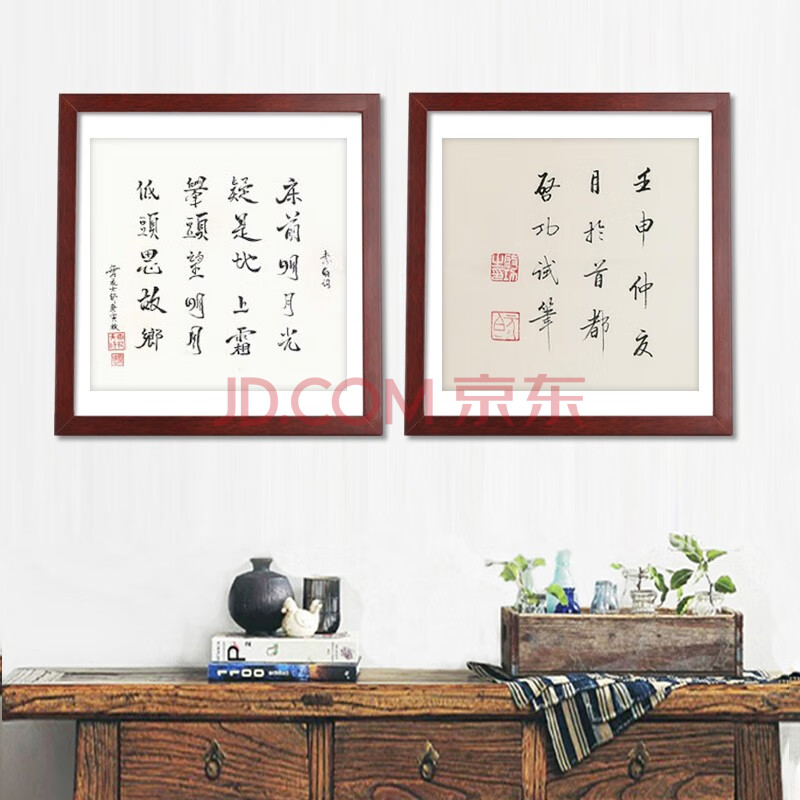 李白詩
床前明月光
疑是地上霜
舉頭望明月
低頭思故鄉
壬申仲夏
月於首都
啓功試筆
元白
JD.COM 京东
1100